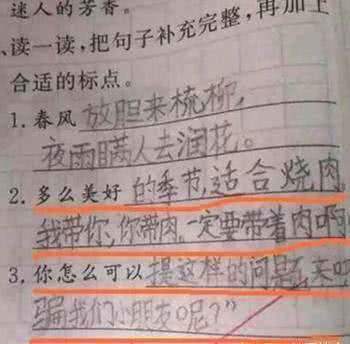 迷人的芳香。
、读一读,把句子补充完整,再加上
合适的标点。
1.春风 放胆来梳柳,
夜雨瞒人去润花。
2.多么美好 的季节,适合烧肉
我带你,你带肉,一定要带着肉啊
3.你怎么可以 提这样的问题来
骗我们小朋友呢?”